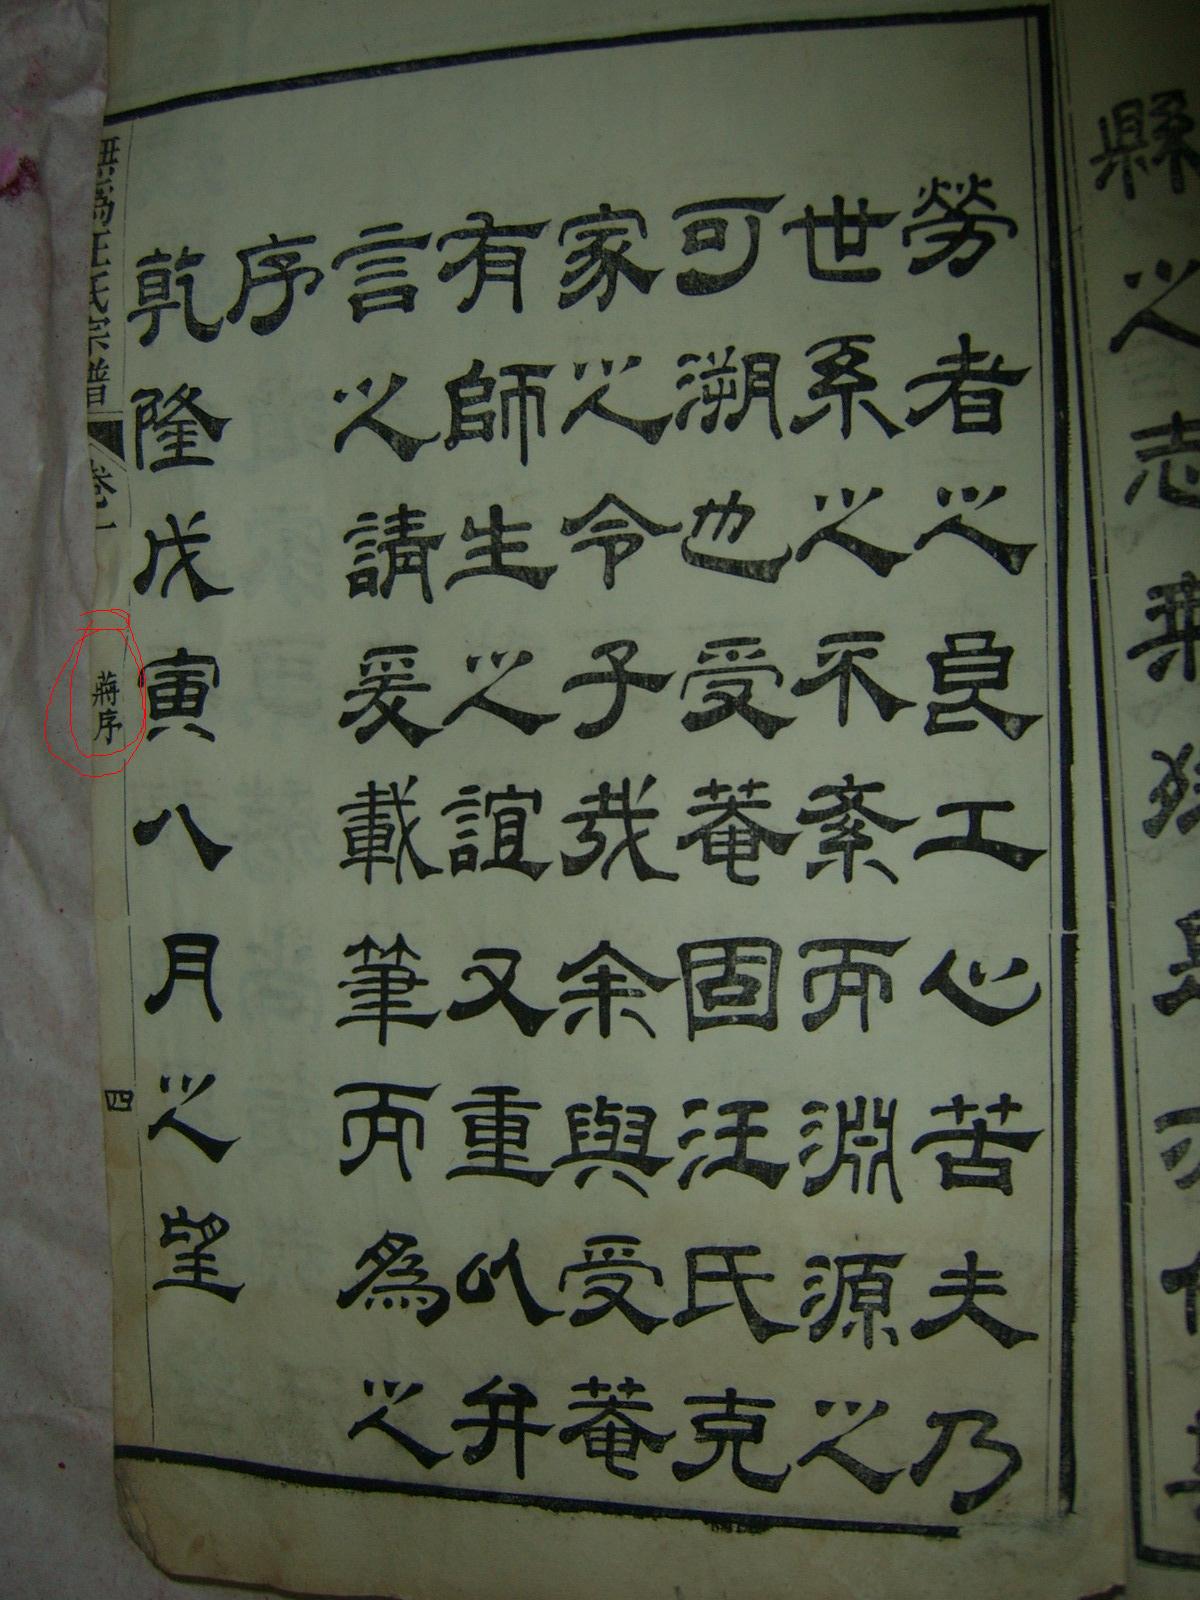 縣之志乘
勞者之良工心苦夫乃
世系之不紊而淵源之
可溯也受菴固汪氏克
家之令子哉余與受菴
有師生之誼又重以弁
言之請爰載筆而為之
序
乾隆戊寅八月之望
無為汪氏宗譜
卷一
蔣序
四